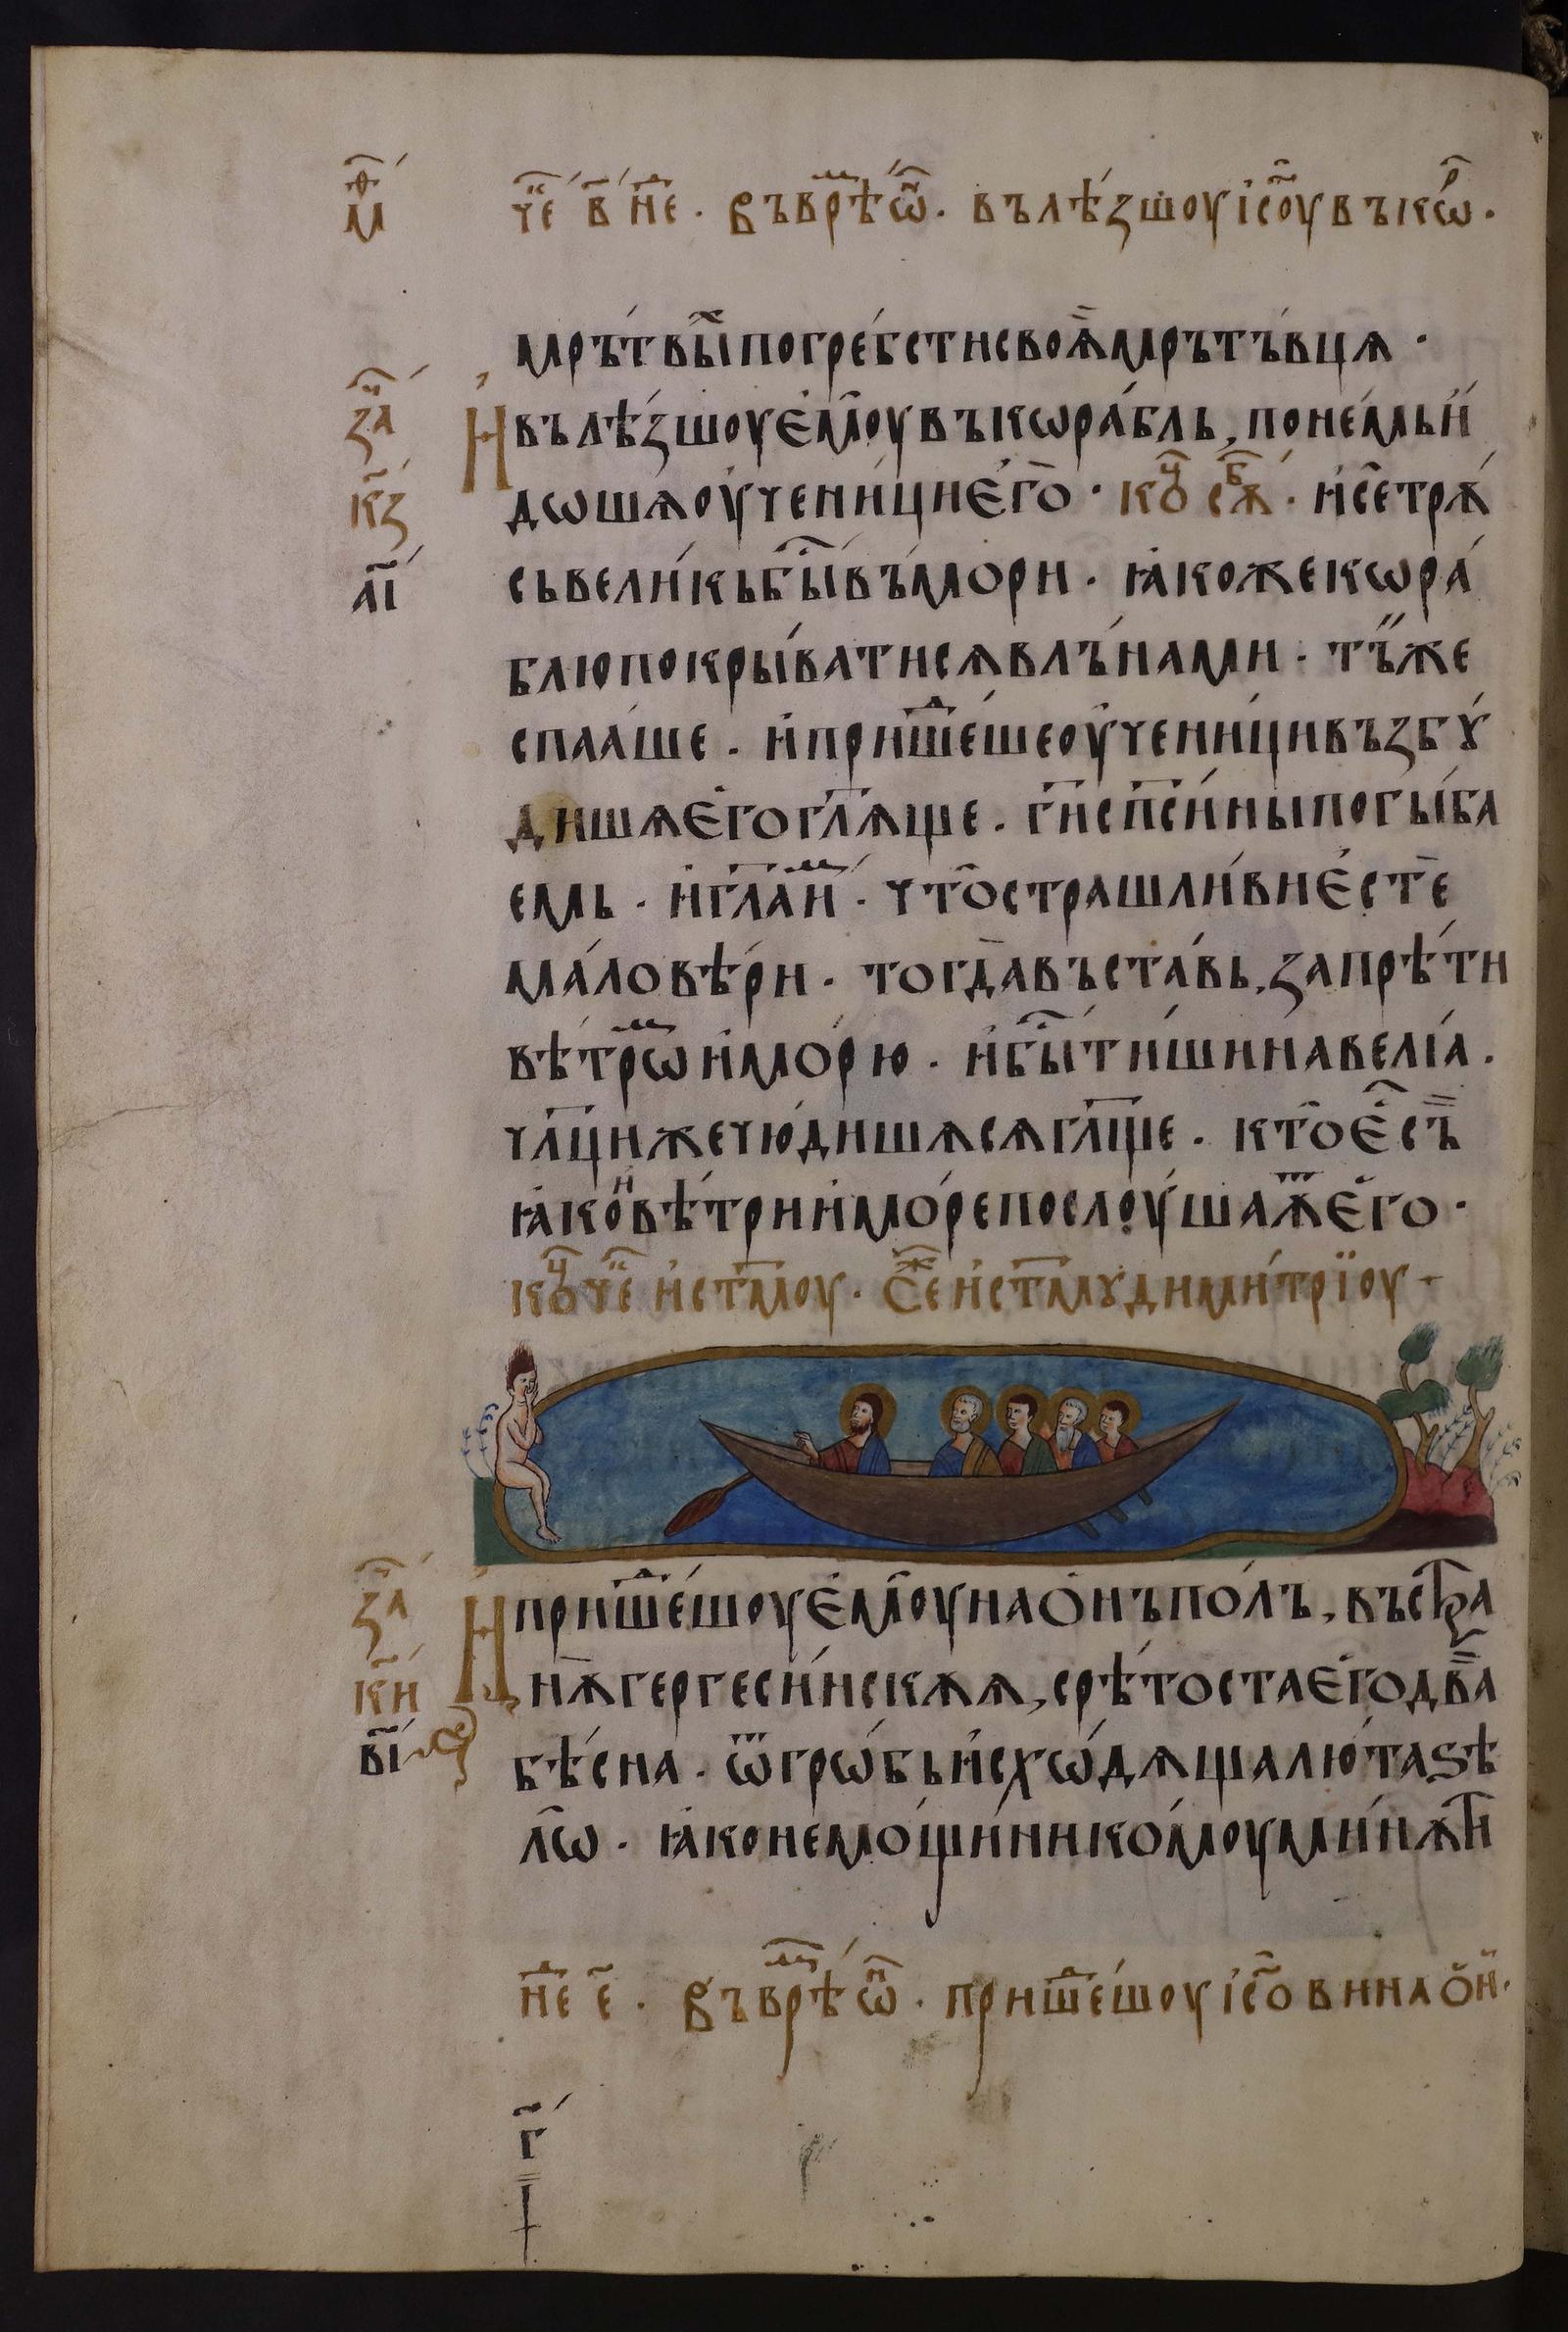 м҃ѳ
че҃ в҃ не҃д · въ врѣ́м ѡ҃н · вълѣ́зшоу і҆сꙋ҃ въ кѡ҃р ·
мръ́твы́ихъ погре́бсти своѧ̀ мрътъ́вцѧ ·
за҃ч
Ивълѣ́зшоу е҆моу̀ въ кѡра́бль, по не́мь и҆
к҃з
дѡшѧ оу҆чени́ци є҆го̀ · ко҃ц сѫб · и҆ сѐ трѫ́
а҃і
съ вели́къ бы́ въ мо́ри · ꙗ҆́коже кѡра́
блю покры́ватисѧ влъна́ми · тъ́ же
спаа́ше · и҆ прише́дше оу҆чени́ци възбꙋ́
дишѧ є҆го гл҃ѧще · гн҃ сп҃си́ ны погы́ба
емь · и҆ гл҃а и҆м · что̀ страшли́ви є҆́стѐ
ма́ловѣ́ри · тогда̀ въста́вь, запрѣ́ти
вѣ́трѡм и҆ мо́рю · и҆ бы́ ти́шина велі́а ·
чл҃ци же чю́дишѧсѧ гл҃ще · кто̀ є҆́съ
ꙗ҆́ко и вѣ́три и҆ мо́ре послоу́шаѫт є҆го ·
ко҃ц че҃ и҆ ст҃моу · Се҃ж и҆ ст҃мꙋ дими́трїоу ·
за҃ч
Иприше́дшоу є҆моу̀ на о҆́нъ по́лъ, въ стра
к҃и
нѫ̀ гергеси́нскѫѧ, срѣ́тоста є҆го̀ два̀
в҃і
бѣ́сна · ѿ грѡ́бь и҆схѡ́дѧща лю́та ѕѣ
лѡ̀ · ꙗ҆́ко не мощи́ никомоу ми́нѫти
не҃д е҃ · въ врѣ́м ѡ҃н · прише́дшоу і҆со҃ви на о҆́н ·
г҃